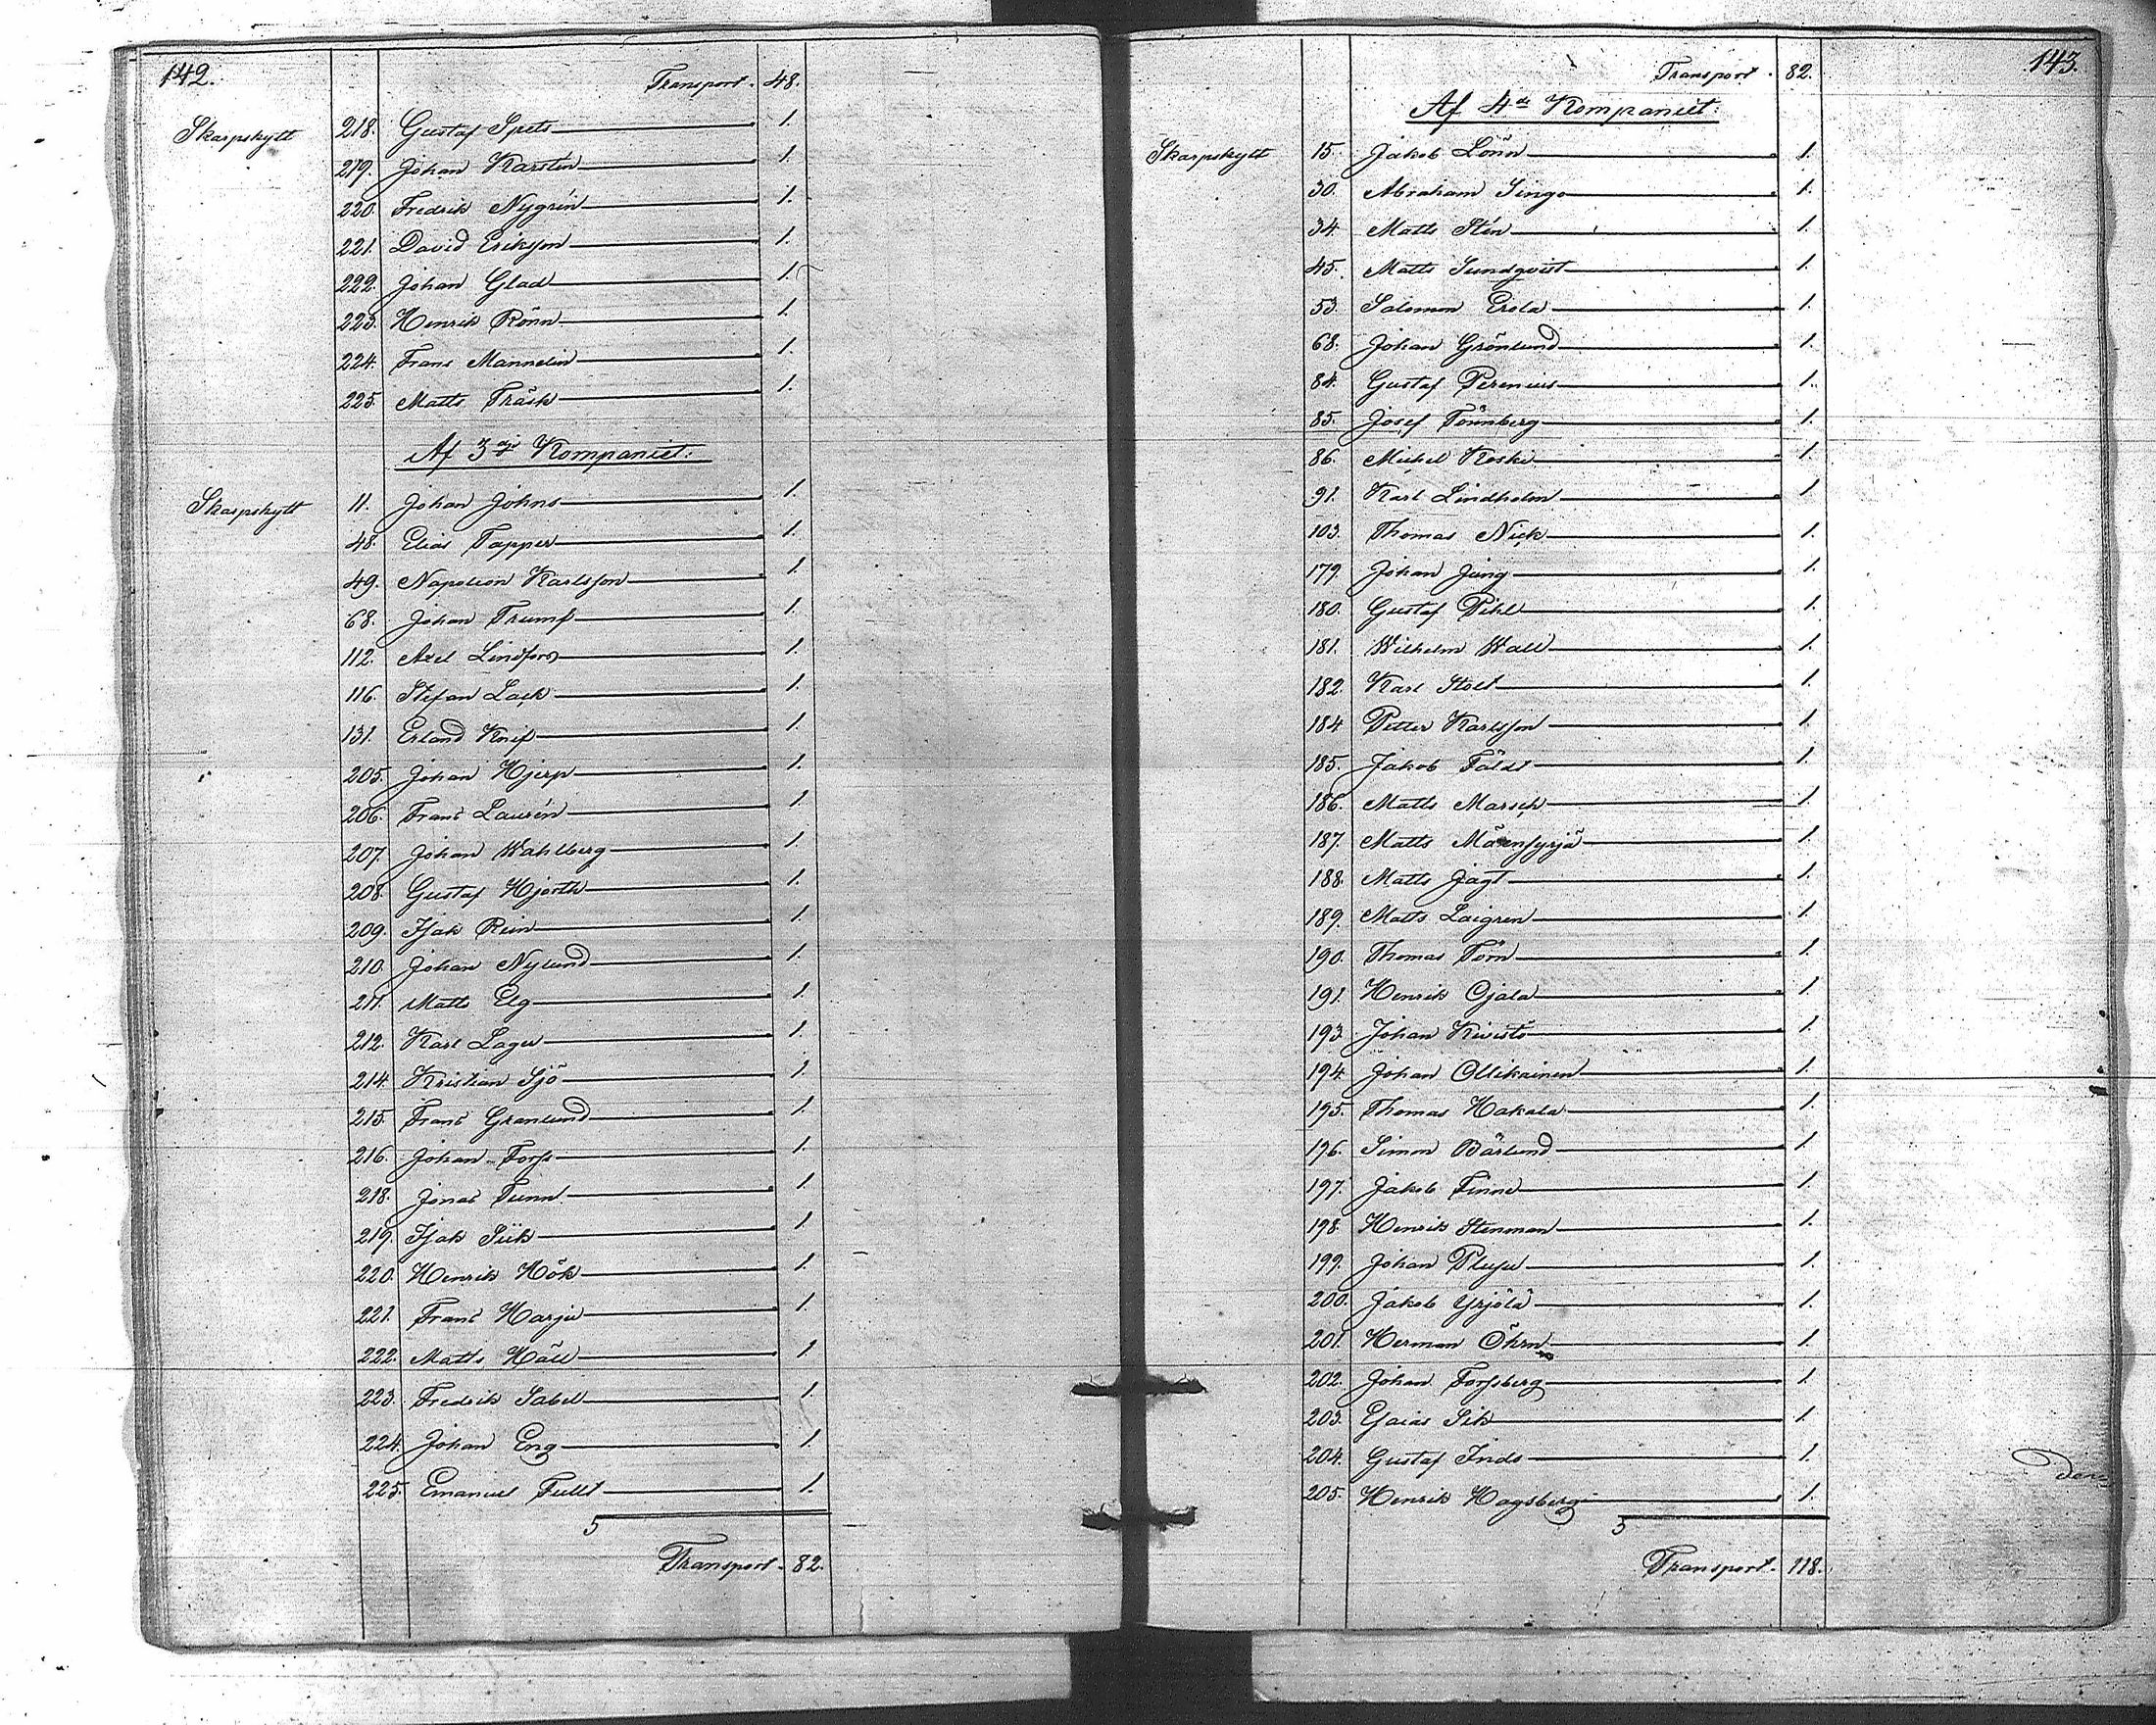 142.
Transport. 48.
Skarpskytt 218. Gustaf Spets 1.
219. Johan Karstén 1.
220. Fredrik Nygrén 1.
221. David Eriksson 1.
222. Johan Glad 1.
223. Henrik Rönn 1.
224. Frans Mannelin 1.
225. Matts Träsk 1.
Af 3dje Kompaniet.
Skarpskytt 11. Johan Johns 1.
48. Elias Tapper 1.
49. Napoleon Karlsson 1.
68. Johan Trumf 1.
112. Axel Lindfors 1.
116. Stefan Lack 1.
131. Erland Knif 1.
205. Johan Hjerp 1.
206. Frans Laurén 1.
207. Johan Wahlberg 1.
208. Gustaf Hjorth 1.
209. Isak Rein 1.
210. Johan Nylund 1.
211. Matts Elg 1.
212. Karl Lager 1.
214. Kristian Sjö 1.
215. Frans Granlund 1.
216. Johan Forss 1.
218. Jonas Tunn 1.
219. Isak Siik 1.
220. Henrik Hök 1.
221. Frans Harju 1.
222. Matts Häll 1.
223. Fredrik Sabel 1.
224. Johan Eng 1.
225. Emanuel Fullt 1.
5
Transport. 82.
143.
Transport. 82.
Af 4de Kompaniet.
Skarpskytt 15. Jakob Lönn 1.
30. Abraham Singo 1.
34. Matts Stén 1.
45. Matts Sundqvist 1.
53. Salomon Erola 1.
68. Johan Grönlund 1.
84. Gustaf Perenius 1.
85. Josef Törnberg 1.
86. Mickel Koski 1.
91. Karl Lindholm 1.
103. Thomas Nick 1.
179. Johan Jung 1.
180. Gustaf Pihl 1.
181. Wilhelm Wall 1.
182. Karl Stolt 1.
184. Petter Karlsson 1.
185. Jakob Fäldt 1.
186. Matts Marsch 1.
187. Matts Mäensyrjä 1.
188. Matts Jagt 1.
189. Matts Laigren 1.
190. Thomas Törn 1.
191. Henrik Ojala 1.
193. Johan Kivistö 1.
194. Johan Ollikainen 1.
195. Thomas Hakala 1.
196. Simon Bärlund 1.
197. Jakob Finne 1.
198. Henrik Stenman 1.
199. Johan 1.
200. Jakob Yrjölä 1.
201. Herman Öhrn 1.
202. Johan Forssberg 1.
203. Esaias Sik 1.
204. Gustaf Inds 1.
205. Henrik Hagsberg 1.
5
Transport. 118.